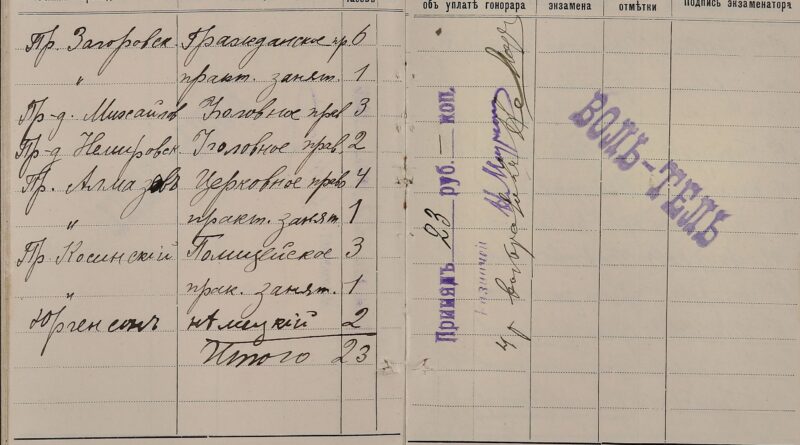 объ уплатѣ гонорара
экзамена
отмѣтки
Подпись экзаменатора
Пр. Загоровск. Гражданское пр. 6
" практ. занят. 1
Пр-д. Михайлов Уголовное прав. 3
Пр-д Немировск Уголовное прав. 2
Пр. Алмазовъ Церковное прав. 4
" практ. занят 1
Пр. Косинскій Полицейское 3
" прак. занят. 1
Юргенсонъ нѣмецкій 2
Итого 23
Принялъ 23 руб. — коп.
Казначей
ВОЛЬ-ТЕЛЬ